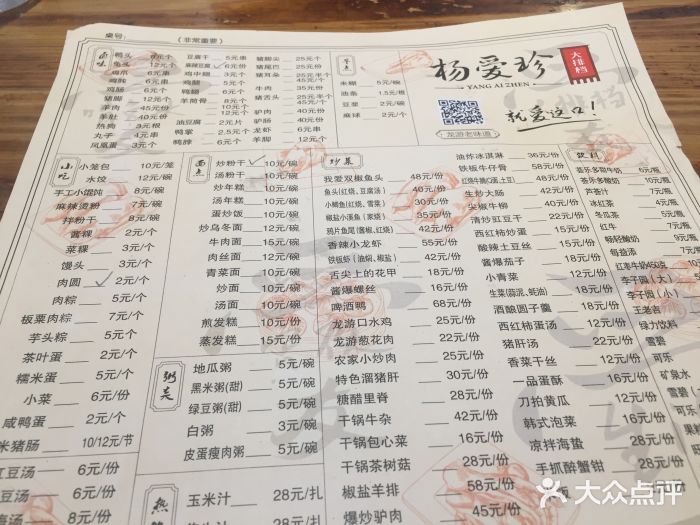 桌号: (非常重要)
卤味
鸭头 6元/个
兔头 12元/个
鸡爪 6元/串
鸡胗
鸡肠
猪脚 12元/个
羊肉
羊肚
热狗 3元/根
丸子 4元/串
凤凰蛋 3元/个
豆腐干 5元/串
麻辣豆腐 6元/份
鸡中翅
鸡腿
鸭翅
羊筒骨
油豆腐 2元/片
鸭掌
鸭脖
猪脚尖 25元/个
猪尾巴 45元/份
猪耳朵
牛肉
猪舌头
驴肉 40元/份
驴肠
龙虾
串串
早点
米糊 5元/碗
油条 1.5元/根
豆浆 2元/碗
麻球 2元/个
杨爱珍
YANG AIZHEN
大排档
龙游老味道
就爱这口!
小吃
小笼包 10元/笼
水饺 12元/碗
手工小馄饨 8元/碗
麻辣烫粉 7元/碗
拌粉干 8元/碗
酱粿 2元/个
菜粿 3元/个
馒头 3元/个
肉圆 2元/个
肉粽 5元/个
板栗肉粽 7元/个
芋头粽 5元/个
茶叶蛋 2元/个
糯米蛋 5元/个
小菜 6元/份
咸鸭蛋 2元/个
米猪肠 10/12元/节
红豆汤 6元/份
豆汤 6元/份
汤 8元/份
面点
炒粉干 10元/碗
汤粉干 10元/碗
炒年糕 10元/碗
汤年糕 10元/碗
蛋炒饭 10元/碗
炒乌冬面 12元/碗
牛肉面 15元/碗
肉丝面 12元/碗
青菜面 10元/碗
炒面 10元/碗
汤面 10元/碗
煎发糕 10元/份
蒸发糕 15元/份
粥类
地瓜粥 5元/碗
黑米粥(甜) 5元/碗
绿豆粥(甜) 5元/碗
白粥 3元/碗
皮蛋瘦肉粥 5元/碗
玉米汁 28元/扎
28元/扎
炒菜
我爱双椒鱼头 48元/份
鱼头(红烧、豆腐汤) 40元/份
小鲫鱼(红烧、雪菜) 30元/份
椒盐小溪鱼(家烧) 35元/份
鸦片鱼尾(酱椒、红烧) 42元/份
香辣小龙虾 55元/份
铁板虾(油焖、椒盐) 45元/份
舌尖上的花甲 18元/份
酱爆螺丝 16元/份
啤酒鸭 68元/份
龙游口水鸡 28元/份
龙游葱花肉 22元/份
农家小炒肉 25元/份
特色溜猪肝 30元/份
糖醋里脊 28元/份
干锅牛杂 42元/份
干锅包心菜 16元/份
干锅茶树菇 28元/份
椒盐羊排 58元/份
爆炒驴肉 45元/份
油炸冰淇淋 36元/份
铁板牛仔骨 50元/份
红烧牛腩(口蘑、土豆) 48元/份
生炒大肠 42元/份
尖椒牛柳 40元/份
清炒豇豆干 22元/份
西红柿炒蛋 16元/份
酸辣土豆丝 15元/份
酱爆茄子 18元/份
小青菜 12元/份
生菜(蒜泥、蚝油) 18元/份
酒酿圆子羹 18元/份
西红柿蛋汤 12元/份
猪肝汤 22元/份
香菜干丝 12元/份
一品蛋酥 16元/份
刀拍黄瓜 12元/份
韩式泡菜 15元/份
凉拌海蛰 28元/份
手抓醉蟹钳 28元/份
饮料
茶乐多咖啡牛奶 6元/瓶
茶乐多酸奶 6元/瓶
芦荟汁 7元/瓶
冰红茶 5元/瓶
冬瓜茶 5元/瓶
红牛
畅轻酸奶
每益添
红老牛奶450克
李子园(大)
李子园(小)
王老吉
绿力饮料
雪碧
可乐
矿泉水
雪碧
可乐
大众点评